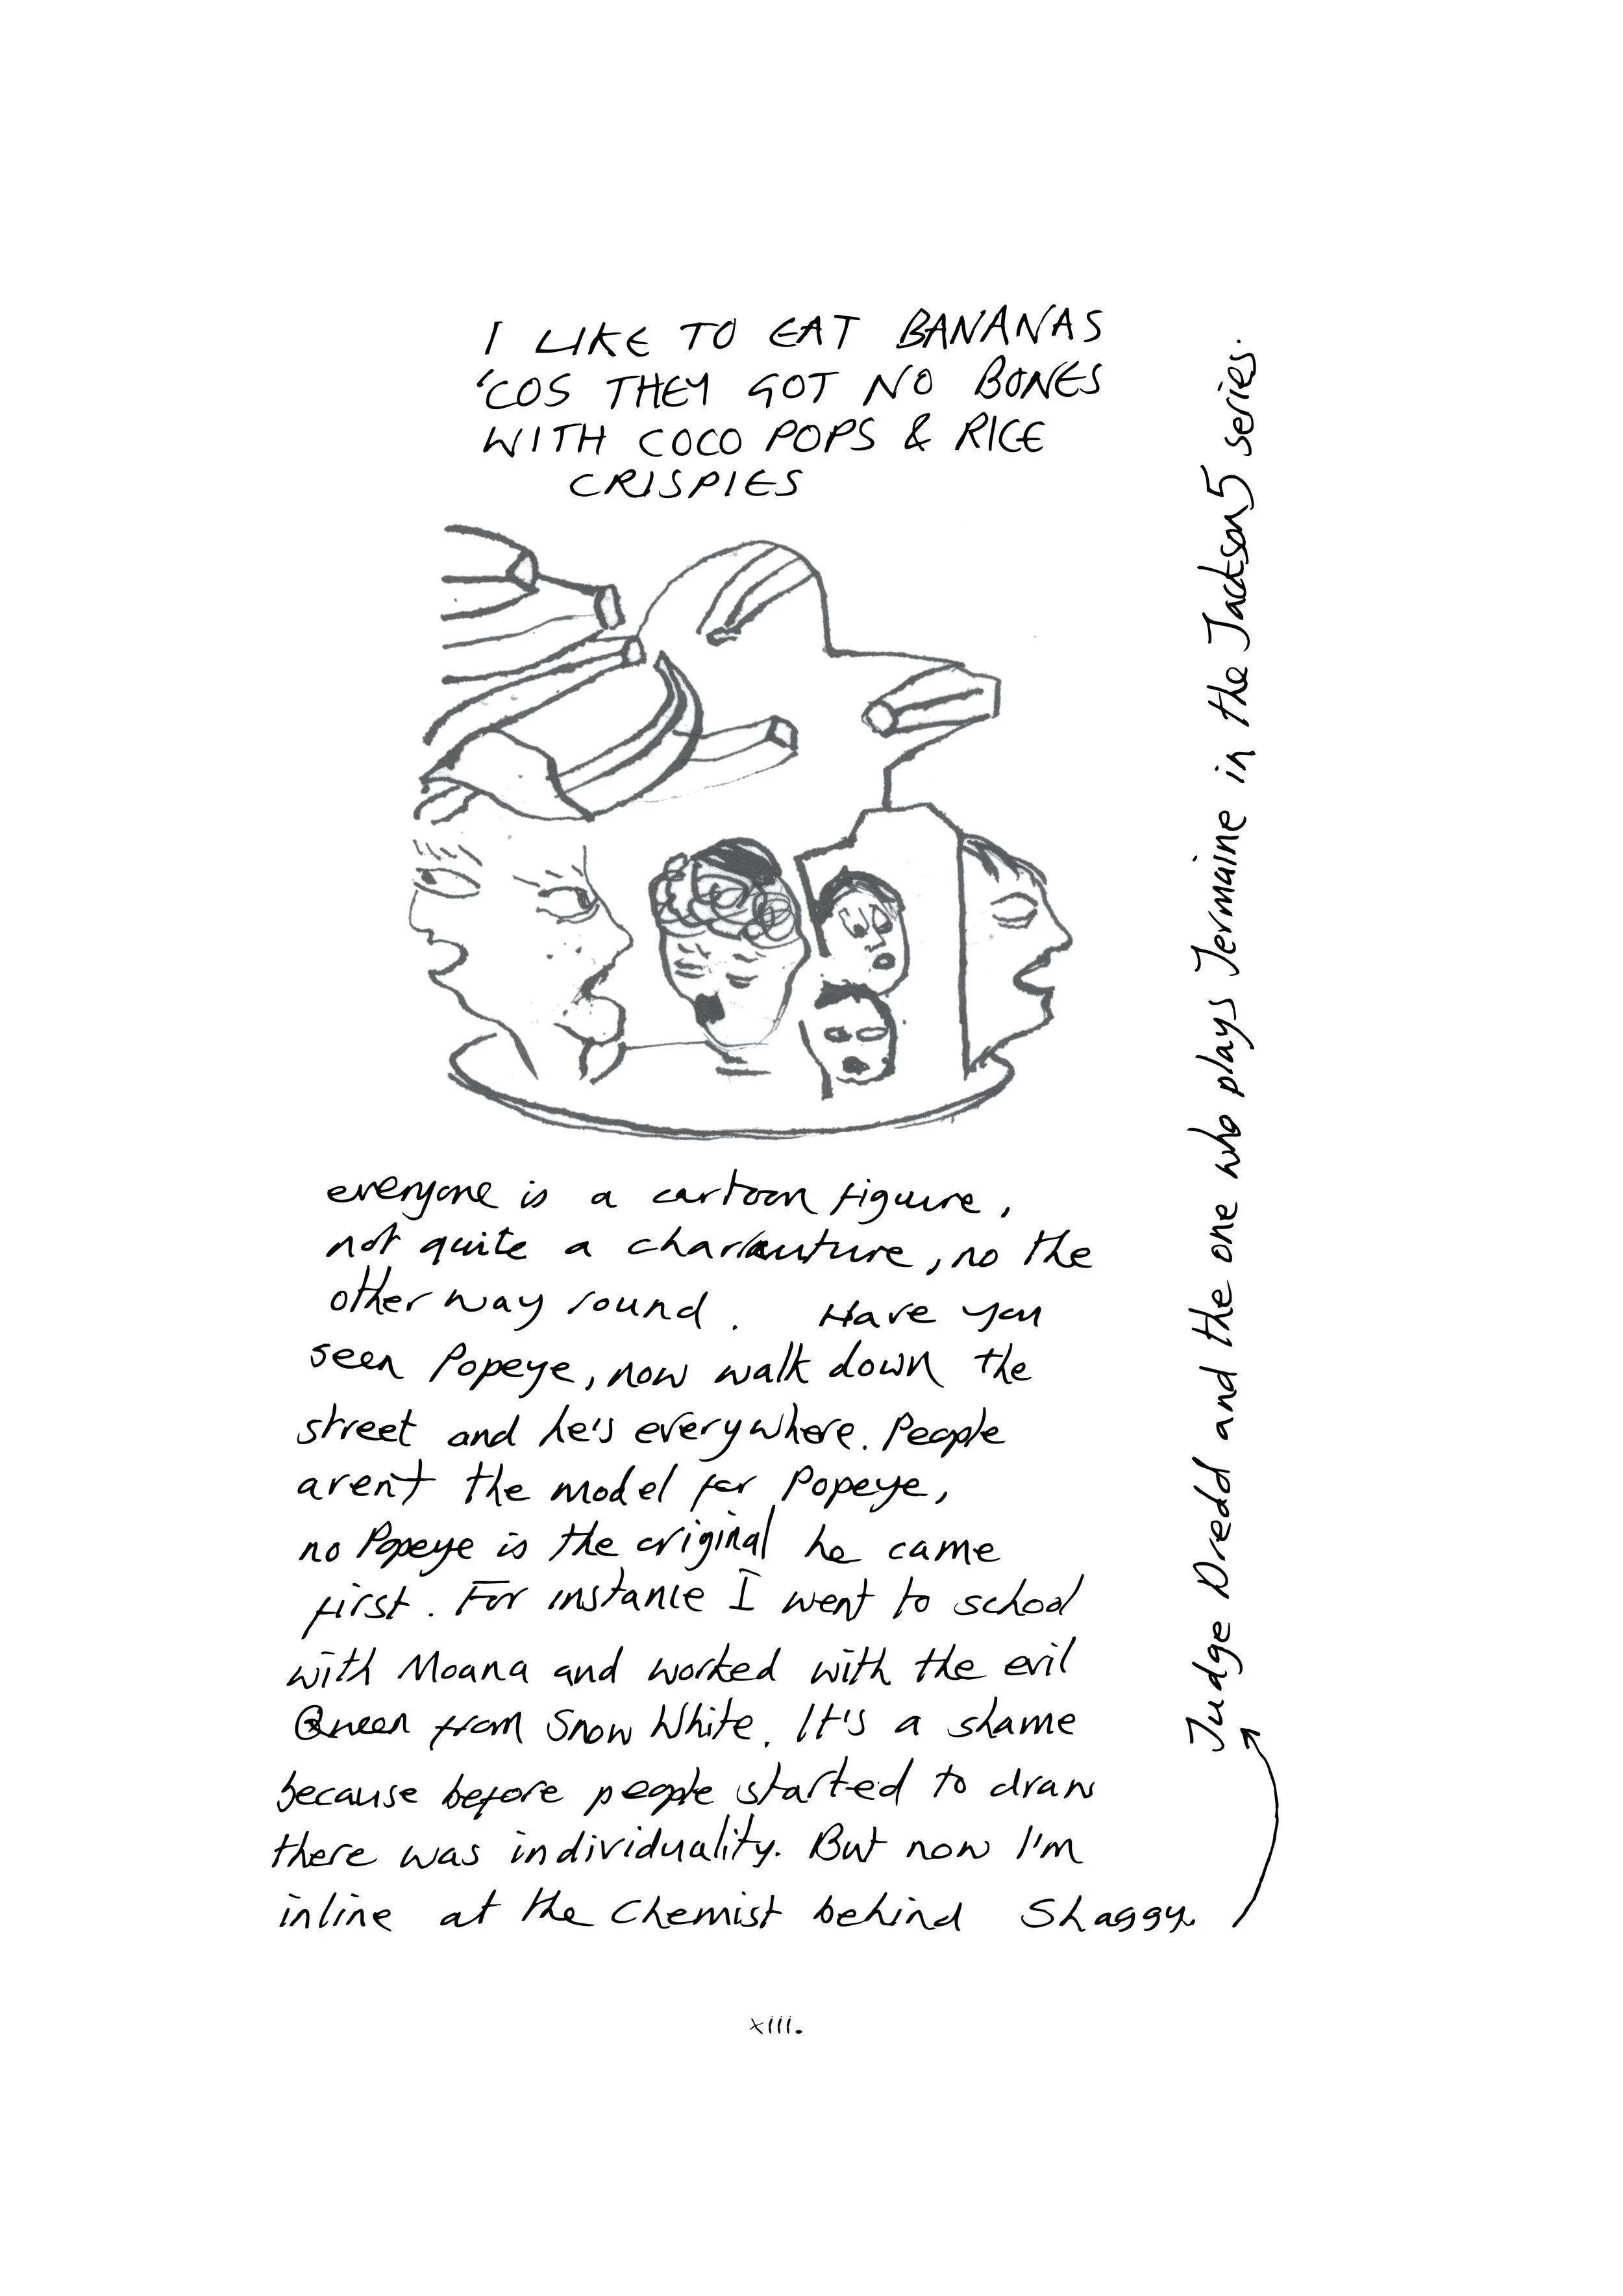 I LIKE TO EAT BANANAS
'COS THEY GOT NO BONES
WITH COCO POPS & RICE
CRISPIES
everyone is a cartoon figuure,
not quite a , no the
other way round. Have you
seen Popeye, now walk down the
street and he's everywhere. People
aren't the model for Popeye,
no Popeye is the original he came
first. For instance I went to school
with Moana and worked with the evil
Queen from Snow White. It's a shame
because before people started to draw
there was individuality. But now I'm
inline at the Chemist behind Shaggy.
Judge Dredd and the one who plays Jermaine in the Jackson 5 series.
xiii.